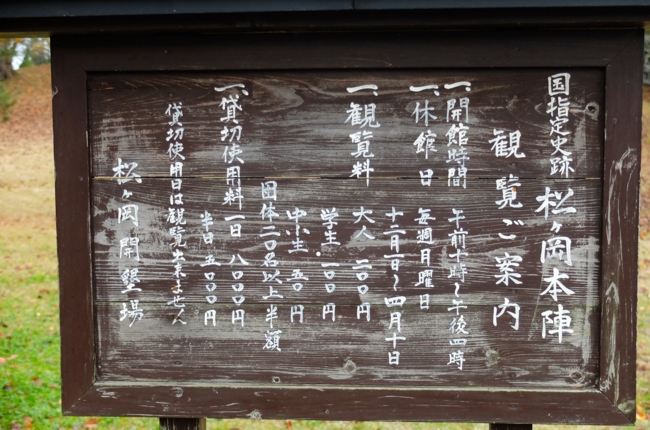 国指定史跡 松ヶ岡本陣
観覧ご案内
一、開館時間 午前十時~午後四時
一、休館日 毎週月曜日
十二月一日~四月十日
一、観覧料 大人 二〇〇円
学生 一〇〇円
中小生 五〇円
団体二〇名以上半額
一、貸切使用料 一日 八〇〇〇円
半日 五〇〇〇円
貸切使用日は観覧出来ません
松ヶ岡開墾場